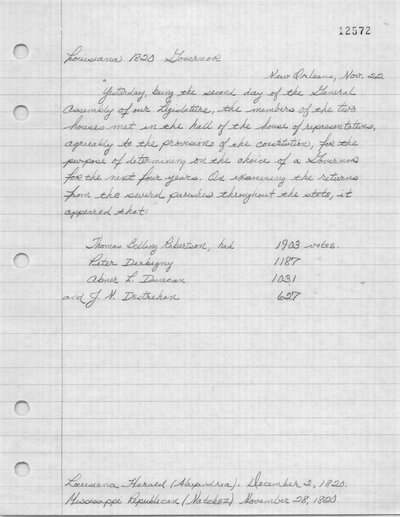 12572
Louisiana 1820 Governor
New Orleans, Nov. 22
"Yesterday, being the second day of the General
Assembly of our Legislature, the members of the two
houses met in the hall of the house of representatives,
agreeably to the provisions of the constitution, for the
purpose of determining on the choice of a Governor
for the next four years. On examining the returns
from the several parishes throughout the state, it
appeared that:
Thomas Bolling Robertson, had 1903 votes.
Peter Derbigny 1187
Abner L. Duncan 1031
and J. N. Destrehan 627 "
Louisiana Herald (Alexandria). December 2, 1820.
Mississippi Republican (Natchez) November 28, 1820.